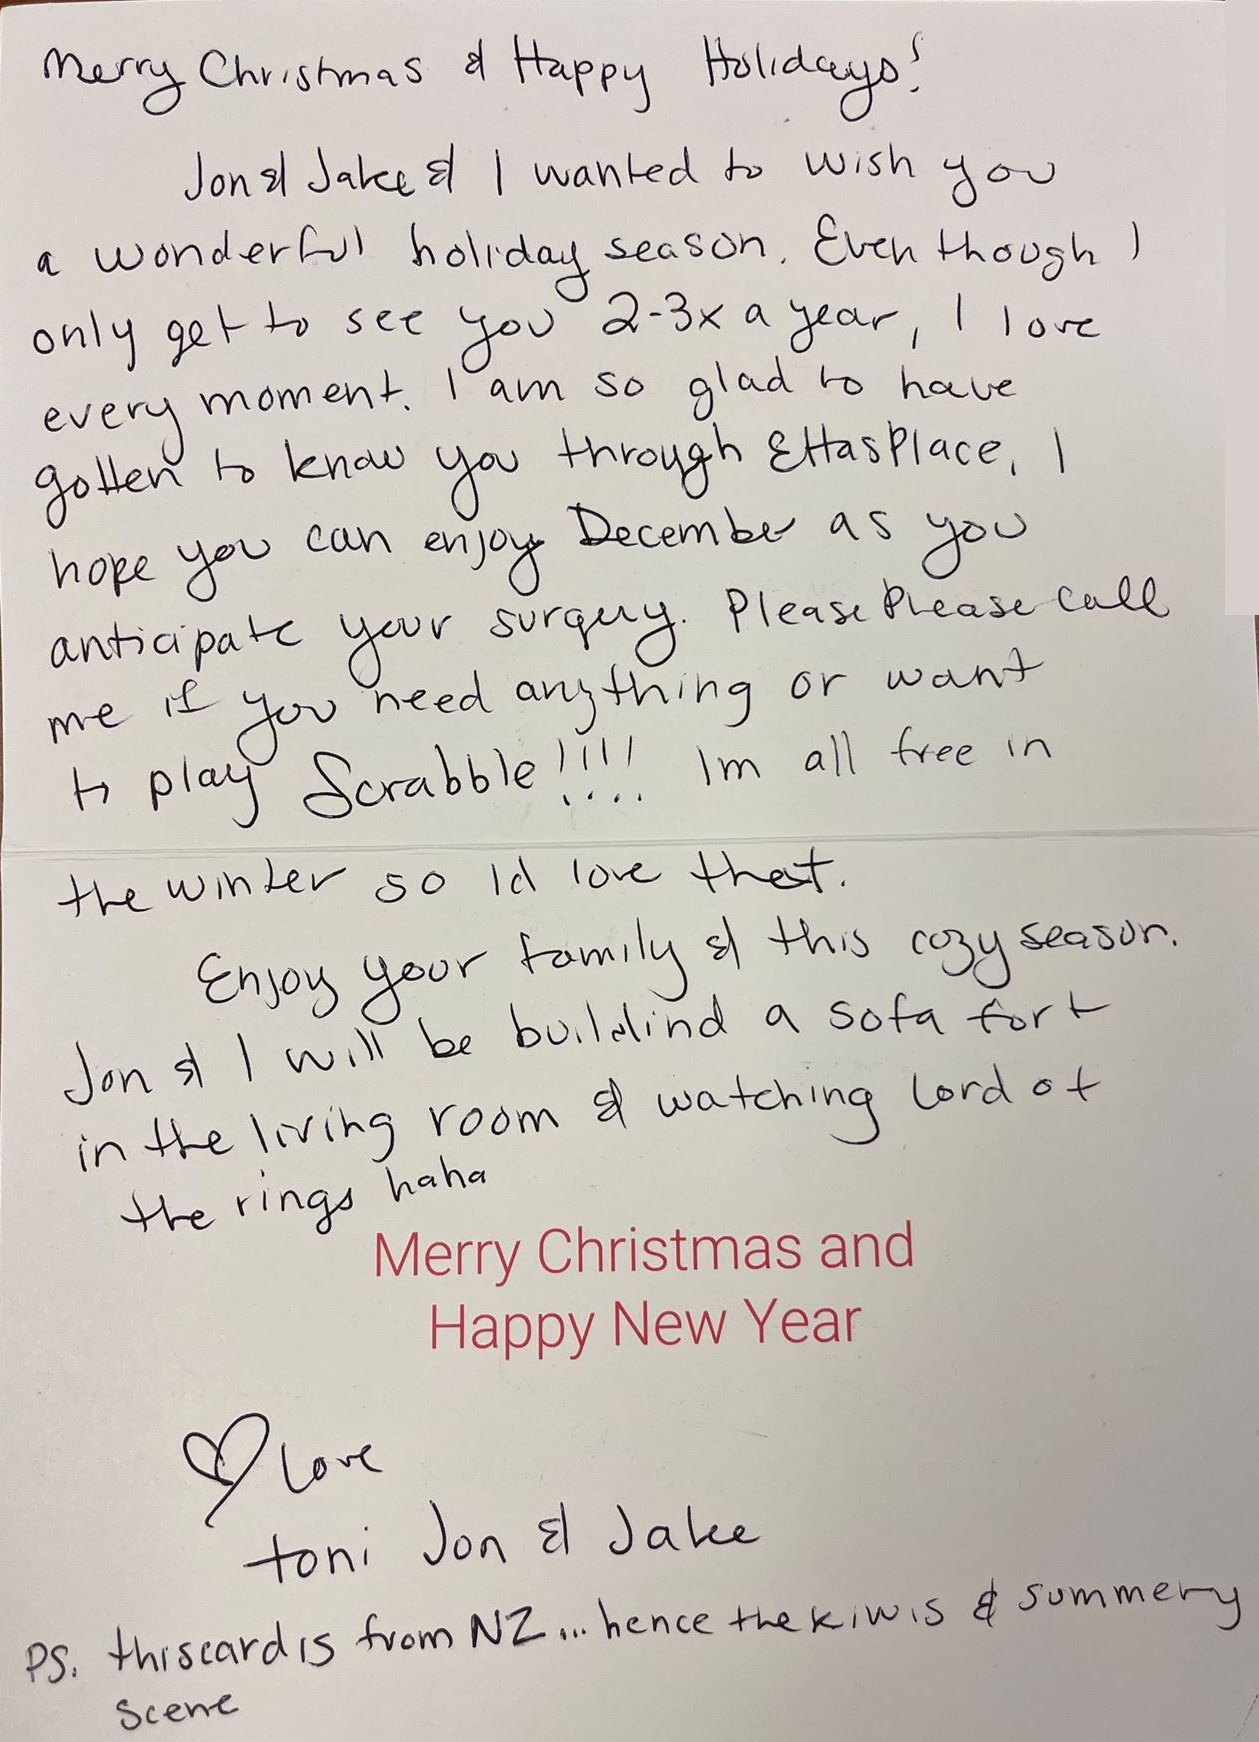 Merry Christmas & Happy Holidays!
Jon & Jake & I wanted to wish you
a wonderful holiday season. Even though I
only get to see you 2-3x a year, I love
every moment. I am so glad to have
gotten to know you through EttasPlace. I
hope you can enjoy December as you
anticipate your surgury. Please Please call
me if you need anything or want
to play Scrabble!!!! Im all free in
the winter so Id love that.
Enjoy your family & this cozy season.
Jon & I will be buildind a sofa fort
in the living room & watching Lord of
the rings haha
Merry Christmas and
Happy New Year
♡ Love
toni Jon & Jake
PS. this card is from NZ... hence the kiwis & summery
scene